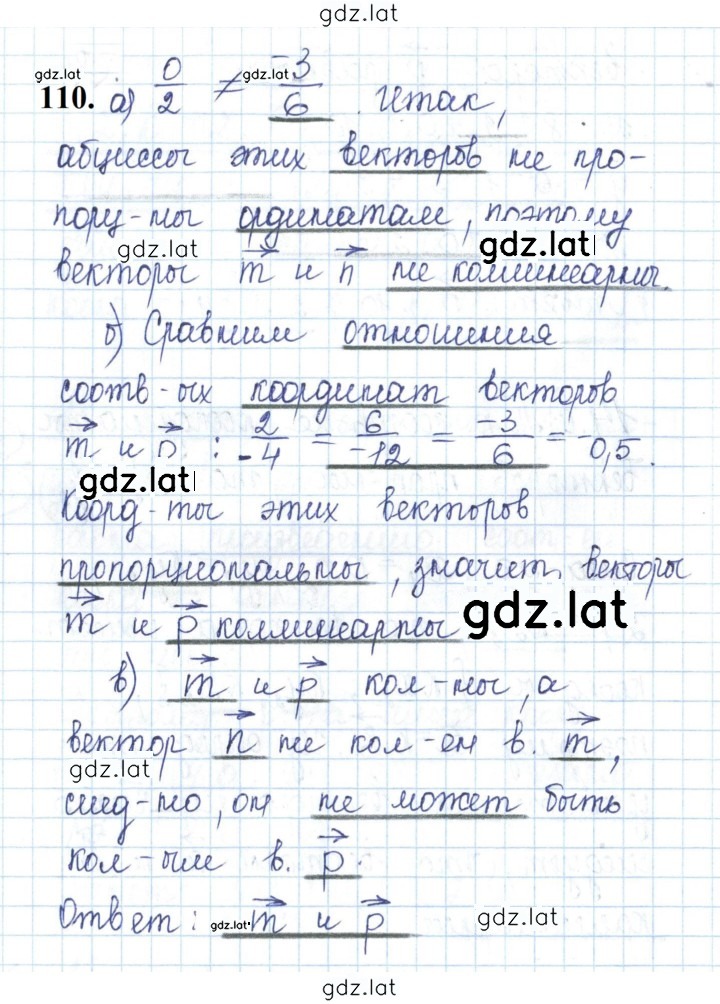 gdz.lat
gdz.lat gdz.lat
110. а) 0/2 ≠ -3/6. Итак,
абциссы этих векторов не про-
порц-ны ординатам, поэтому
gdz.lat gdz.lat
векторы m и n не коллинеарны.
б) Сравним отношения
соотв-ых координат векторов
m и p : 2/-4 = 6/-12 = -3/6 = -0,5.
gdz.lat
Коорд-ты этих векторов
пропорциональны, значит, векторы
m и p коллинеарны gdz.lat
в) m и p кол-ны, а
вектор n не кол-ен в. m,
gdz.lat
след-но, он не может быть
кол-ым в. p.
Ответ: gdz.lat m и p gdz.lat
gdz.lat